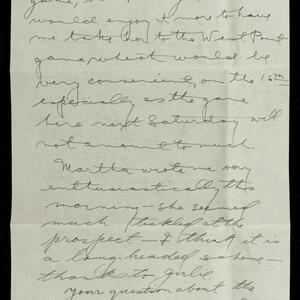 would enjoy it more to have
me take her to the West Point
game, which would be
very convenient, on the 16th
especially as the game
here next Saturday will
not amount to much.
Martha wrote me very
enthusiastically this
morning - she seemed
much tickled at the
prospect - I think it is
a long-headed scheme -
thanks to girlie
Your question about the